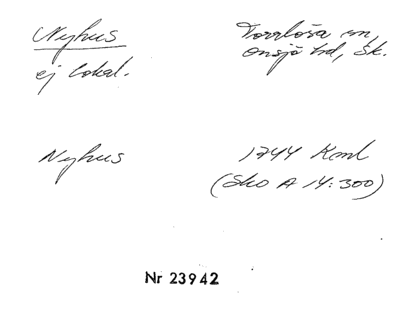 Nyhus
ej lokal.
Torrlösa sn,
Onsjö hd, Sk.
Nyhus
1744 Kml
(Sko A 14:300)
Nr 23942